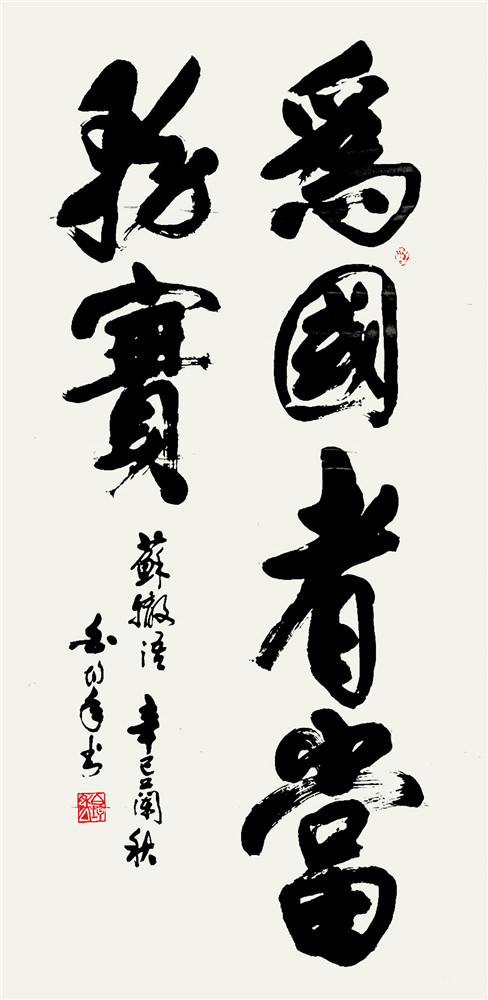 為國者當
務實
蘇轍語 辛巳蘭秋